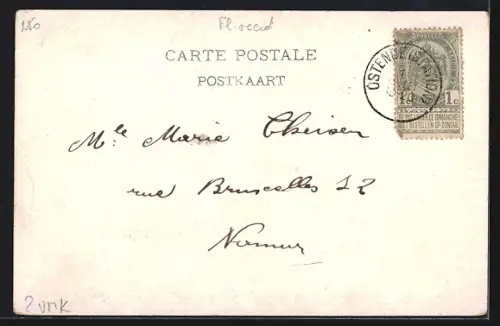 150
Fl. occid
CARTE POSTALE
POSTKAART
OSTENDE (STATION)
1c
NE PAS LIVRER LE DIMANCHE
NIET BESTELLEN OP ZONDAG
Mle Marie Theisen
rue Bruxelles 12
Namur
? VMK